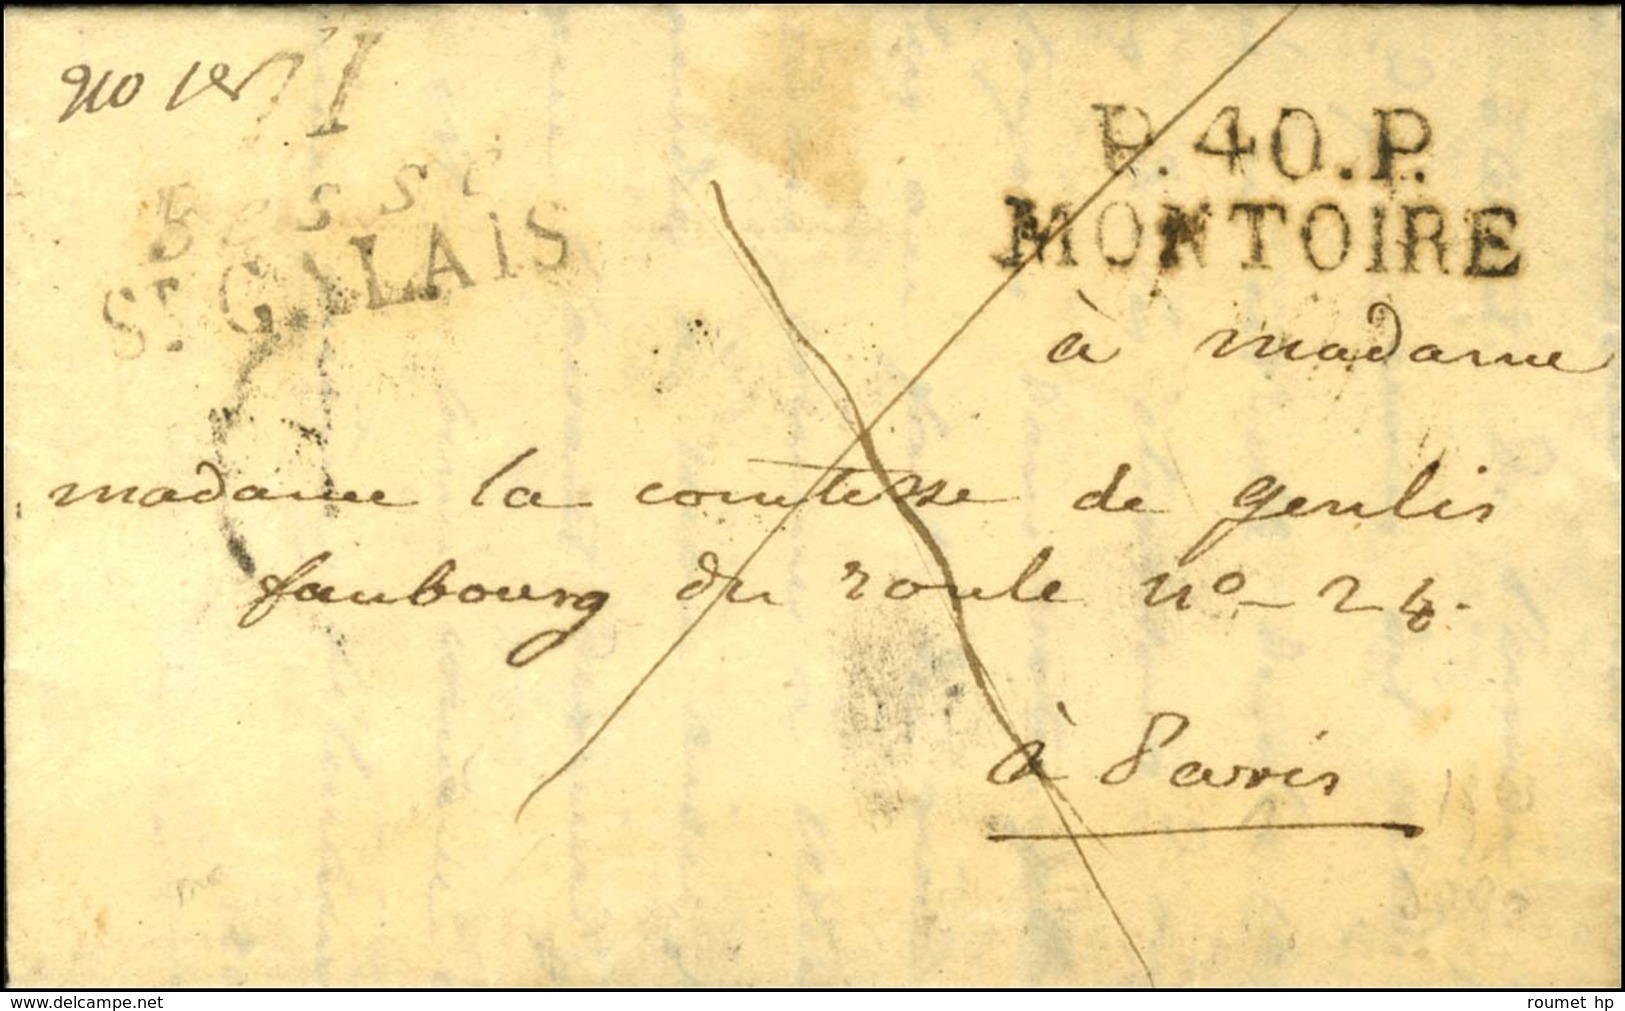 no 1er
71
Besse
ST. CALAIS
P.40.P.
MONTOIRE
à madame
madame la comtesse de genlis
faubourg du roule n° - 24.
à Paris
www.delcampe.net
roumet hp